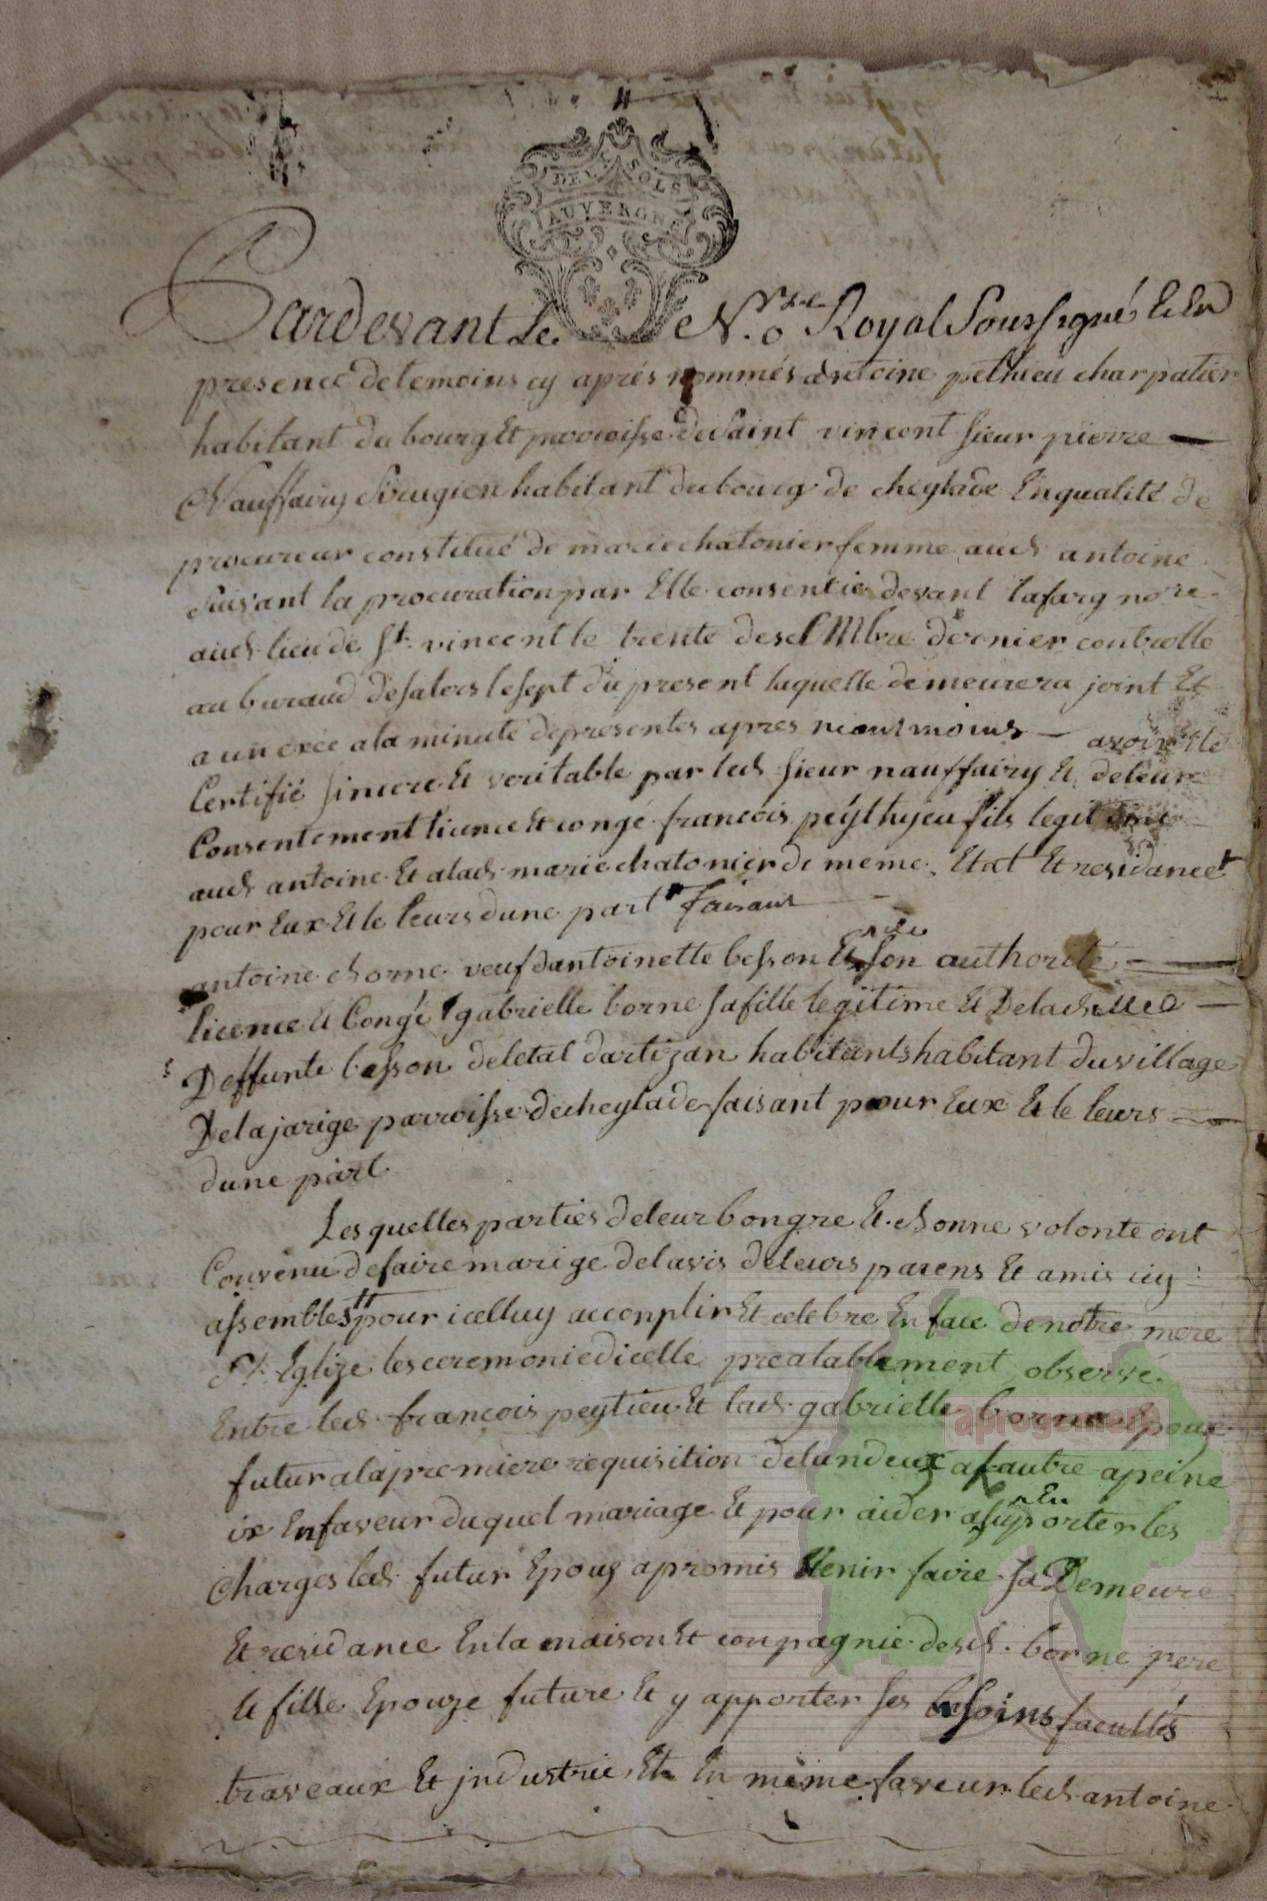 DEUX SOLS
AUVERGNE
Pardevant Le N.re Royal Soussigné Et En
presence de temoins cy aprés nommés antoine pethieu charpatier
habitant du bourg Et parroisse de Saint vincent sieur pierre
Nauffairy Sirugien habitant du bourg de cheylade En qualité de
procureur constitué de marie chatonier femme aud antoine
suivant la procuration par Elle consentie devant lafarg nore
aud lieu de St vincent le trente dernier controlle
au buraud de salers le sept du present laquelle demeurera joint Et
a la minute de presentes apres neant moins avoir Eté
Certifié sincere Et veritable par led sieur nauffairy Et de leur
Consentement licence Et congé francois peythyeu fils legitime
aud antoine Et alad marie chatonier de meme Etat Et residance
pour Eux Et le leurs dune part faisant
antoine borne veuf dantoinette besson Et son authorité
licence Et Congé gabrielle borne sa fille legitime Et De lad
Deffunte besson de letat dartizan habitants habitant du village
De la jarige parroisse de cheylade faisant pour Eux Et le leurs
dune part
Les quelles parties de leur bon gre Et bonne volonte ont
Convenu de faire marige de lavis de leurs parens Et amis icy
assembles pour icelluy acconplir Et celebre En face de notre mere
St Eglize les ceremonie dicelle prealablement observé
Entre led francois peytieu Et lad gabrielle borne Epoux
futur a la premiere requisition de lun deux a lautre apeine
ix En faveur duquel mariage Et pour aider a suporter les
En
charges led futur Epoux a promis Venir faire sa Demeure
Et residance En la maison Et conpagnie desd borne pere
Et fille Epouze future Et y apporter ses soins facultés
traveaux Et jndustrie Et En mème faveur led antoine
aprogemere